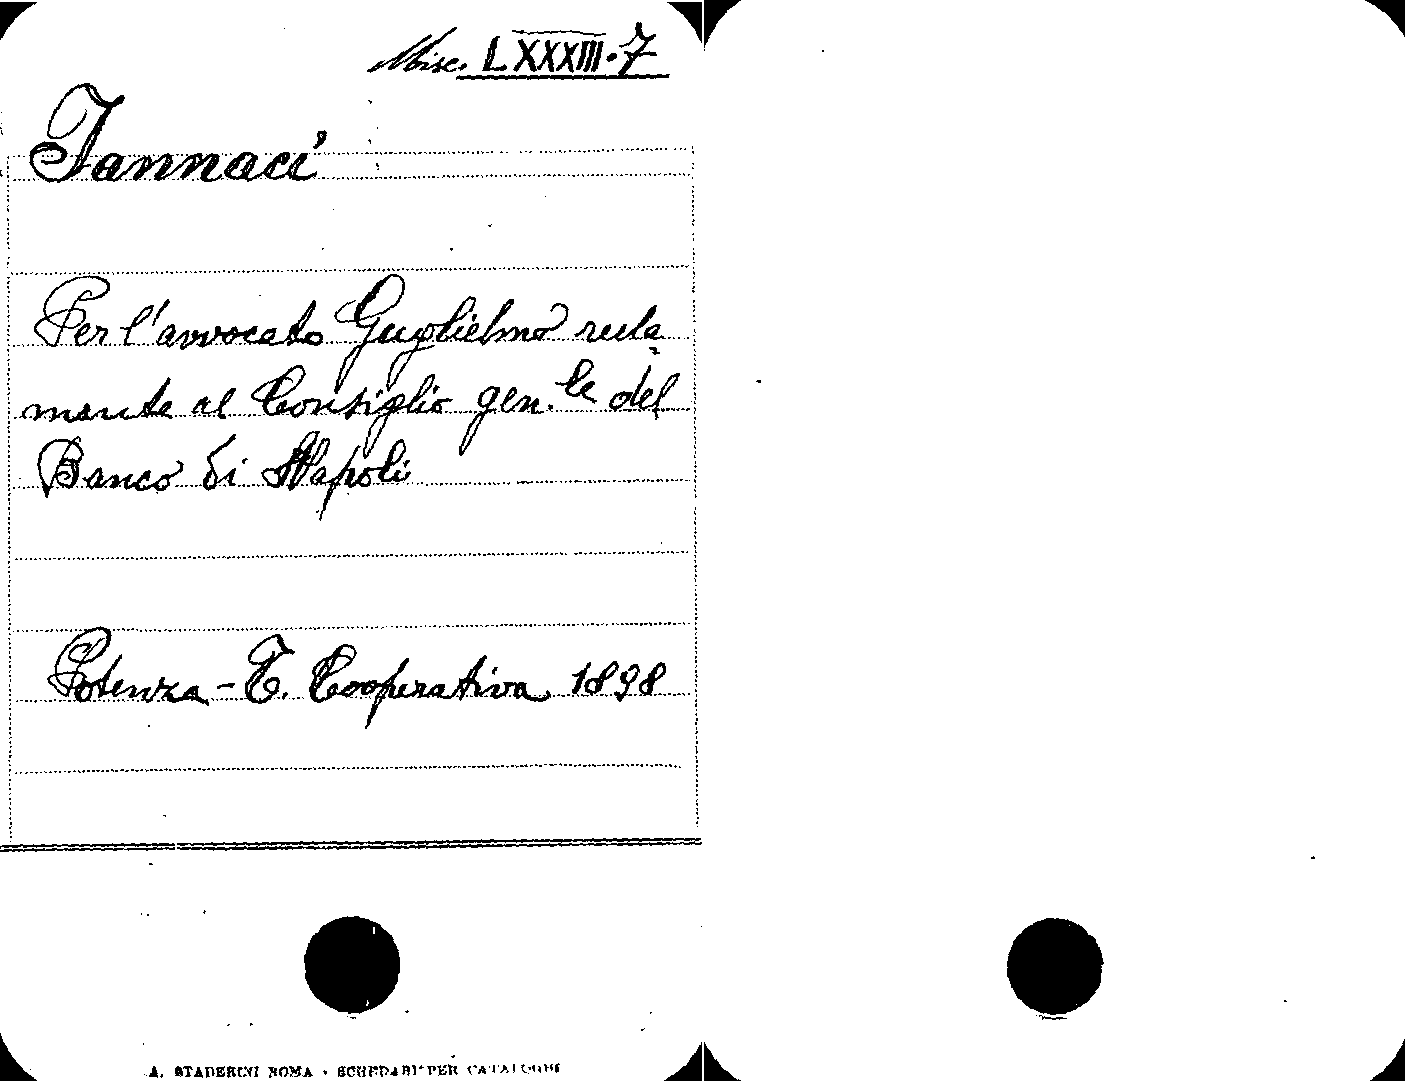 Misc. LXXXIII. 7
Iannaci
Per l'avvocato Guglielmo recla
mante al Consiglio gen.le del
Banco di Napoli
Potenza - T. Cooperativa 1898
A. STADERINI ROMA - SCHEDARI PER CATALOGHI